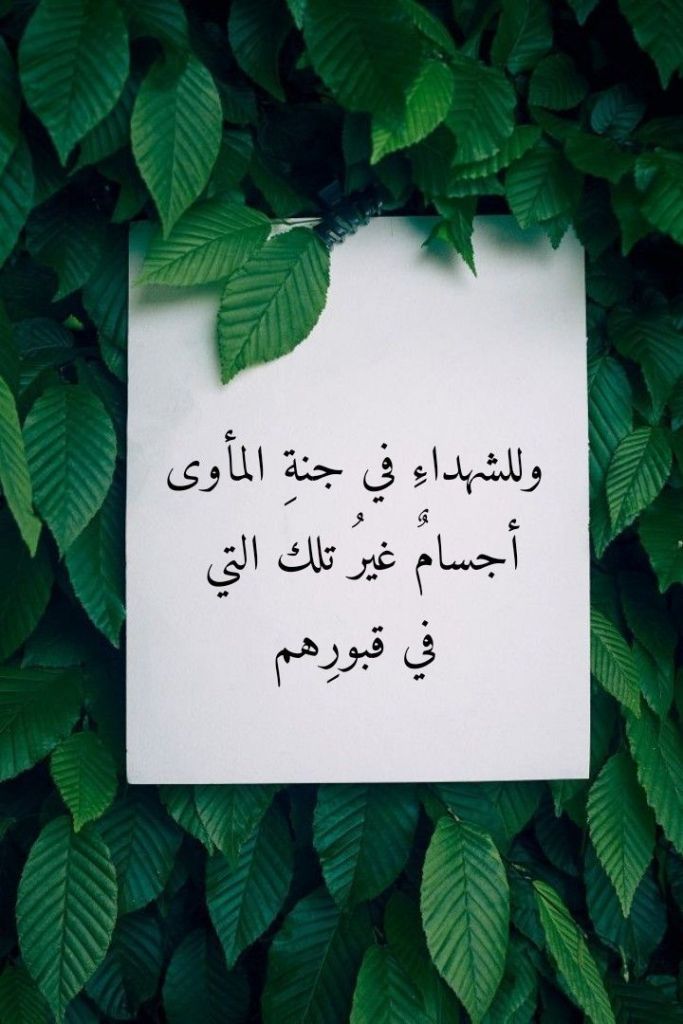 وللشهداءِ في جنةِ المأوى
أجسامٌ غيرُ تلك التي
في قبورِهم